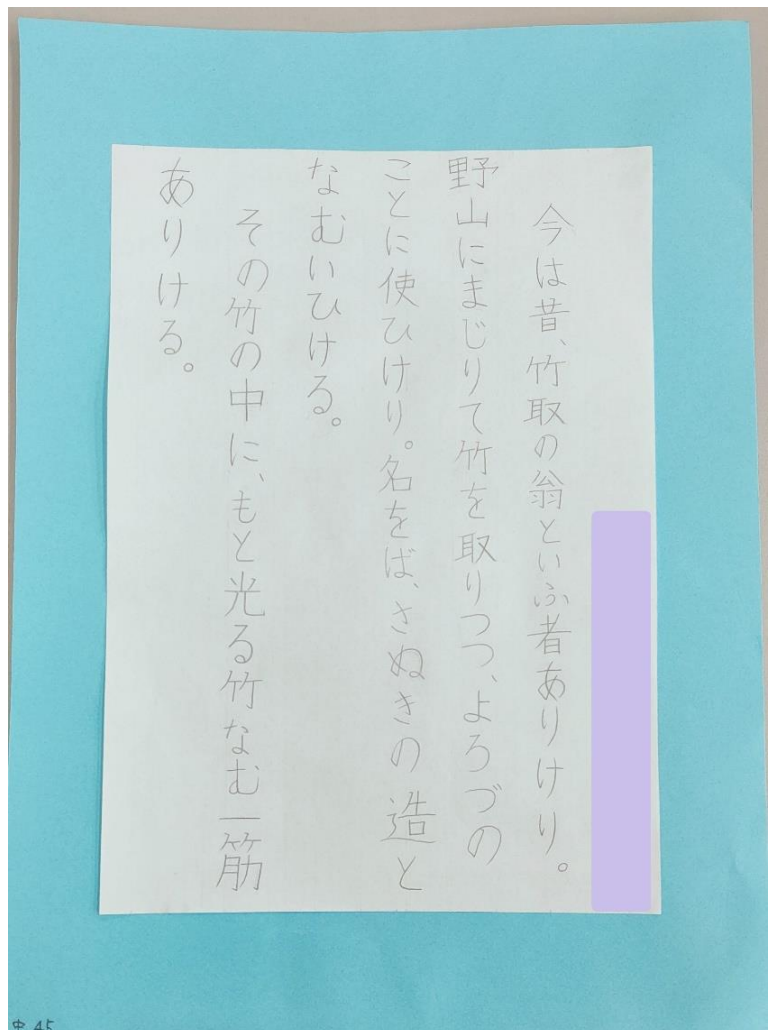 今は昔、竹取の翁といふ者ありけり。
野山にまじりて竹を取りつつ、よろづの
ことに使ひけり。名をば、さぬきの造と
なむいひける。
その竹の中に、もと光る竹なむ一筋
ありける。